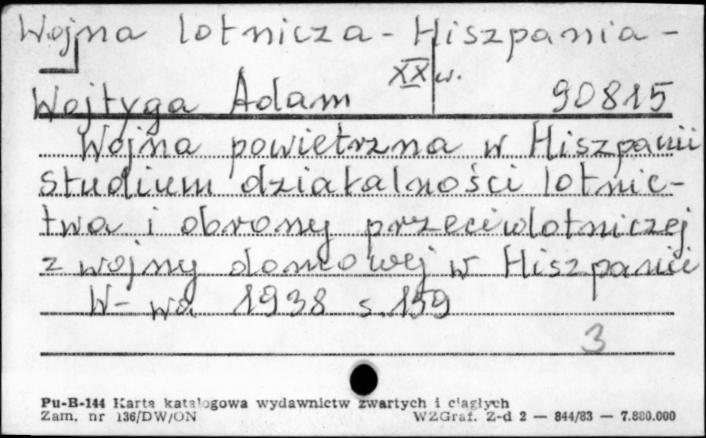 Wojna lotnicza - Hiszpania -
XX w.
Wojtyga Adam 90815
Wojna powietrzna w Hiszpanii
studium działalności lotnic-
twa i obrony przeciwlotniczej
z wojny domowej w Hiszpanii
W-wa 1938 s. 159
3
Pu-B-144 Karta katalogowa wydawnictw zwartych i ciągłych
Zam. nr 136/DW/ON WZGraf. Z-d 2 — 844/83 — 7.880.000